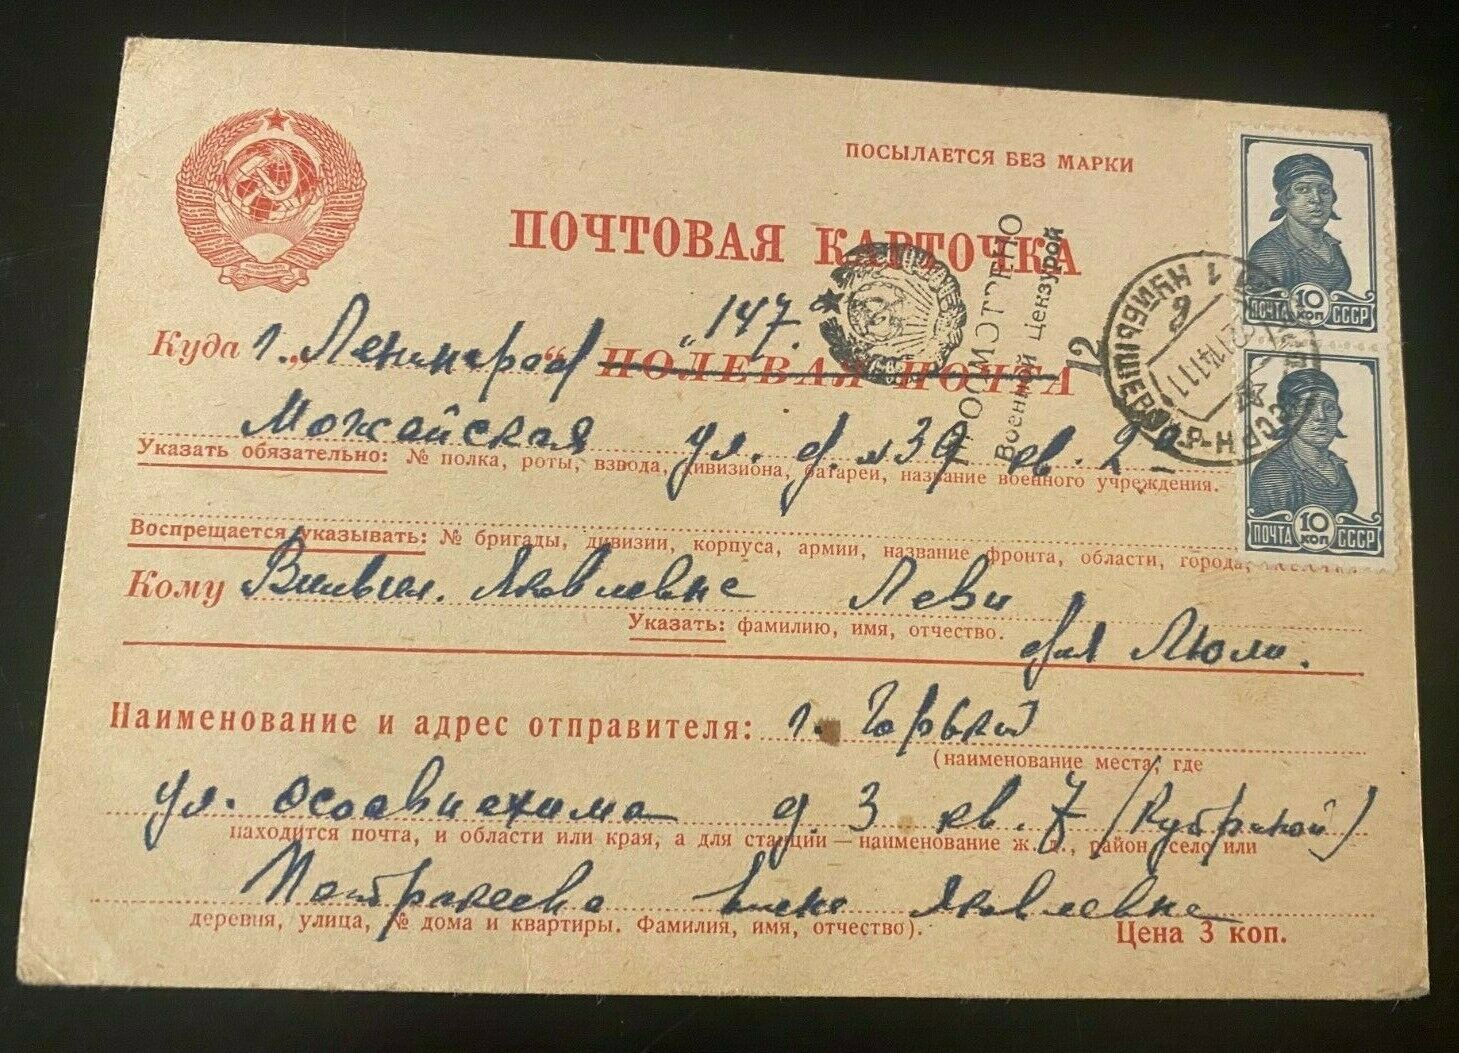 ПОСЫЛАЕТСЯ БЕЗ МАРКИ
ПОЧТОВАЯ КАРТОЧКА
ПРОСМОТРЕНО
Военной Цензурой
12
"147"
Куда г. Ленинград
„ “ ПОЛЕВАЯ ПОЧТА
Можайская ул. д. №39 кв. 2
Указать обязательно: № полка, роты, взвода, дивизиона, батареи, название военного учреждения.
Воспрещается указывать: № бригады, дивизии, корпуса, армии, название фронта, области, города,
Кому Яковлевне Леви
Указать: фамилию, имя, отчество.
для Люли.
Наименование и адрес отправителя: г. Горький
(наименование места, где
ул. Осоавиахима д. 3 кв. 7
находится почта, и области или края, а для станции—наименование ж. д., район, село или
Яковлевна
деревня, улица, № дома и квартиры. Фамилия, имя, отчество).
Цена 3 коп.
ПОЧТА 10 КОП СССР
ПОЧТА 10 КОП СССР